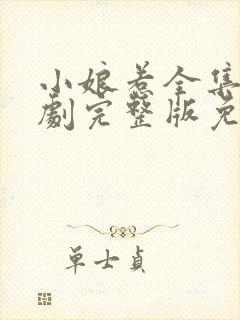 小娘惹全集
劇完整版免
单士貞